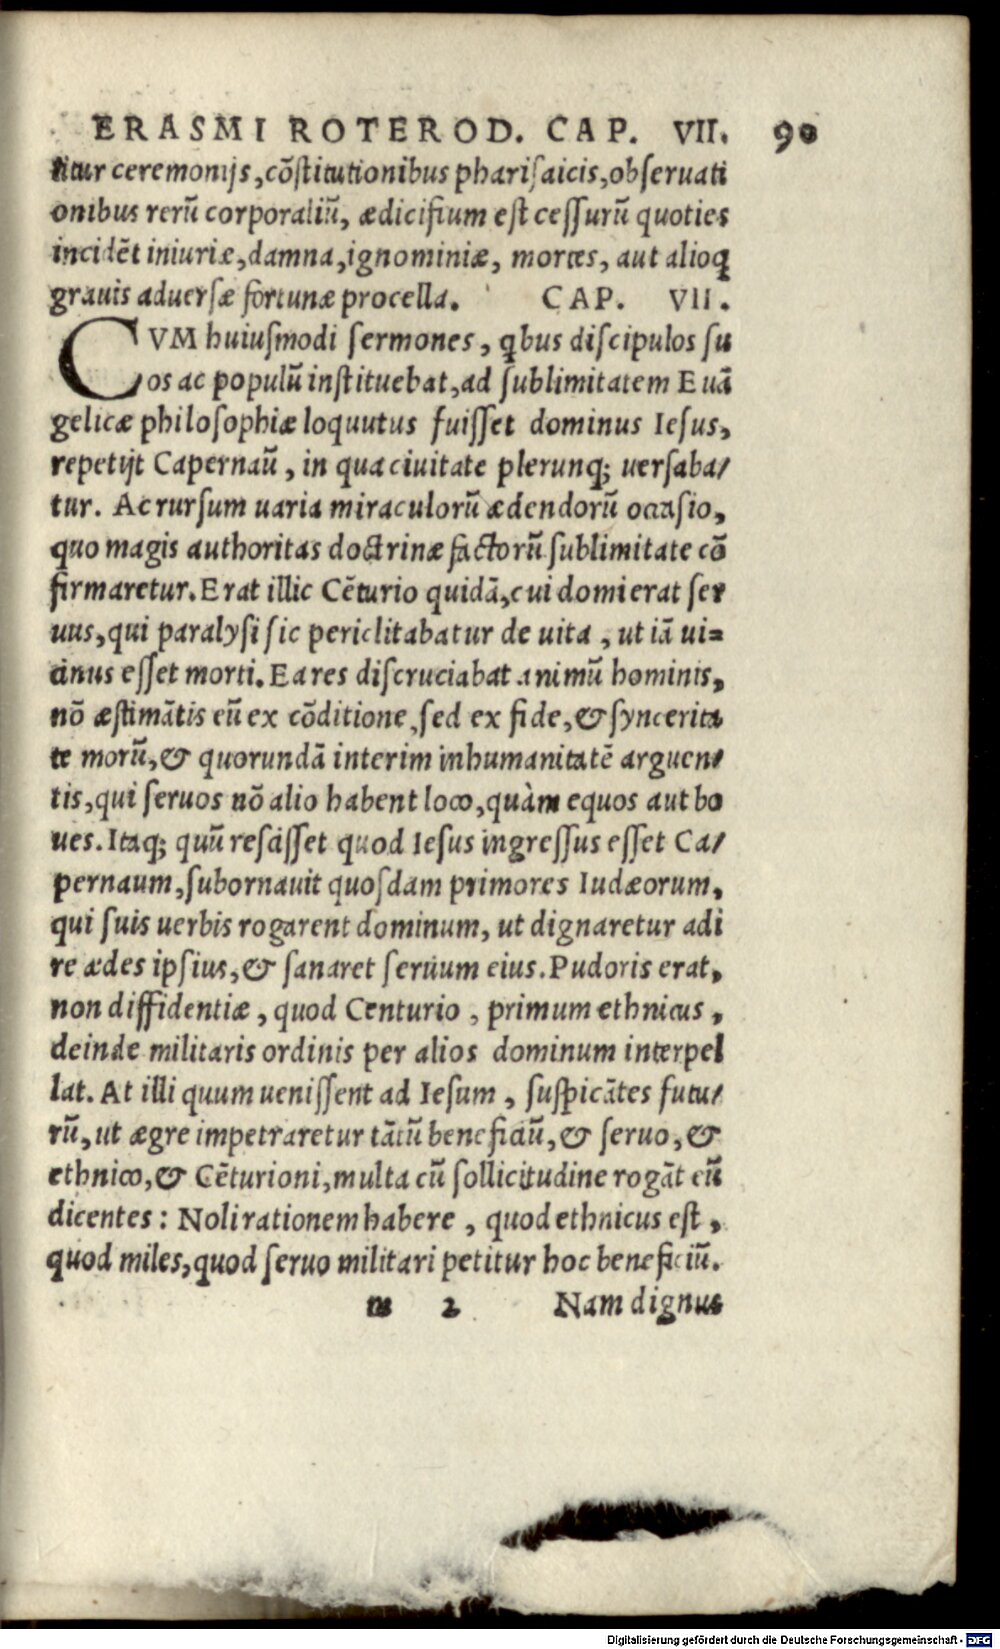 ERASMI ROTEROD. CAP. VII. 90
titur ceremonijs, cõstitutionibus pharisaicis, obseruati
onibus rerũ corporaliũ, ædicifium est cessurũ quoties
incidẽt iniuriæ, damna, ignominiæ, mortes, aut alioq
grauis aduersæ fortunæ procella. CAP. VII.
CVM huiusmodi sermones, qbus discipulos su
os ac populũ instituebat, ad sublimitatem Euã
gelicæ philosophiæ loquutus fuisset dominus Iesus,
repetijt Capernaũ, in qua ciuitate plerunq; uersaba/
tur. Ac rursum uaria miraculorũ ædendorũ occasio,
quo magis authoritas doctrinæ factorũ sublimitate cõ
firmaretur. Erat illic Cẽturio quidã, cui domi erat ser
uus, qui paralysi sic periclitabatur de uita, ut iã ui=
cinus esset morti. Ea res discruciabat animũ hominis,
nõ æstimãtis eũ ex cõditione, sed ex fide, & syncerita
te morũ, & quorundã interim inhumanitatẽ arguen/
tis, qui seruos nõ alio habent loco, quàm equos aut bo
ues. Itaq; quũ rescisset quod Iesus ingressus esset Ca/
pernaum, subornauit quosdam primores Iudæorum,
qui suis uerbis rogarent dominum, ut dignaretur adi
re ædes ipsius, & sanaret seruum eius. Pudoris erat,
non diffidentiæ, quod Centurio, primum ethnicus,
deinde militaris ordinis per alios dominum interpel
lat. At illi quum uenissent ad Iesum, suspicãtes futu/
rũ, ut ægre impetraretur tãtũ beneficiũ, & seruo, &
ethnico, & Cẽturioni, multa cũ sollicitudine rogãt eũ
dicentes: Noli rationem habere, quod ethnicus est,
quod miles, quod seruo militari petitur hoc beneficiũ.
m 2 Nam dignus
Digitalisierung gefördert durch die Deutsche Forschungsgemeinschaft - DFG